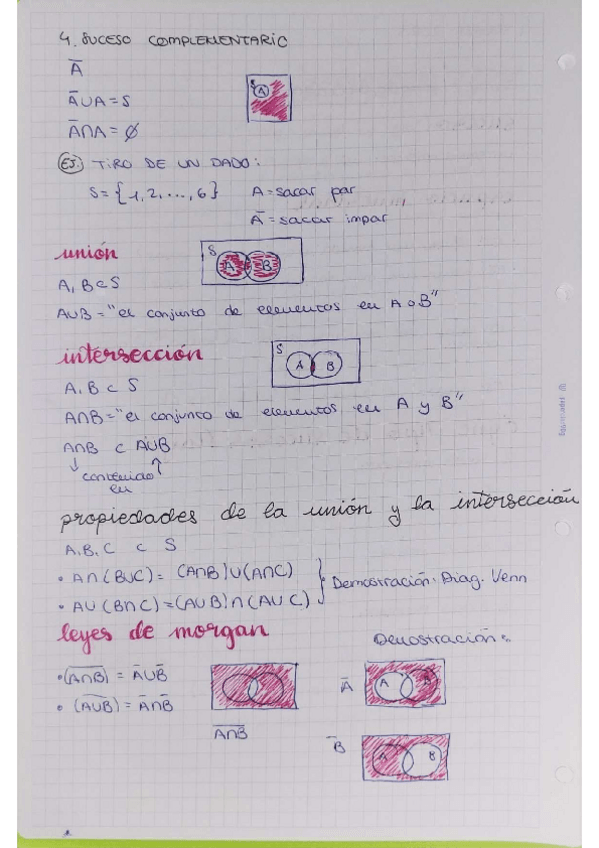 4. SUCESO COMPLEMENTARIO
A̅
A̅∪A = S
A̅∩A = ∅
S A
EJ. TIRO DE UN DADO:
S = {1, 2, ..., 6} A = sacar par
A̅ = sacar impar
unión
S A B
A, B ⊂ S
A∪B = "el conjunto de elementos en A o B"
intersección
S A B
A, B ⊂ S
A∩B = "el conjunto de elementos en A y B"
A∩B ⊂ A∪B
↓ contenido ↑
en
propiedades de la unión y la intersección
A, B, C ⊂ S
• A∩(B∪C) = (A∩B)∪(A∩C)
• A∪(B∩C) = (A∪B)∩(A∪C) } Demostración: Diag. Venn
leyes de morgan
Demostración:
• (A∩B)̅ = A̅∪B̅
• (A∪B)̅ = A̅∩B̅
A̅ A
A̅∩B̅
B̅ A B